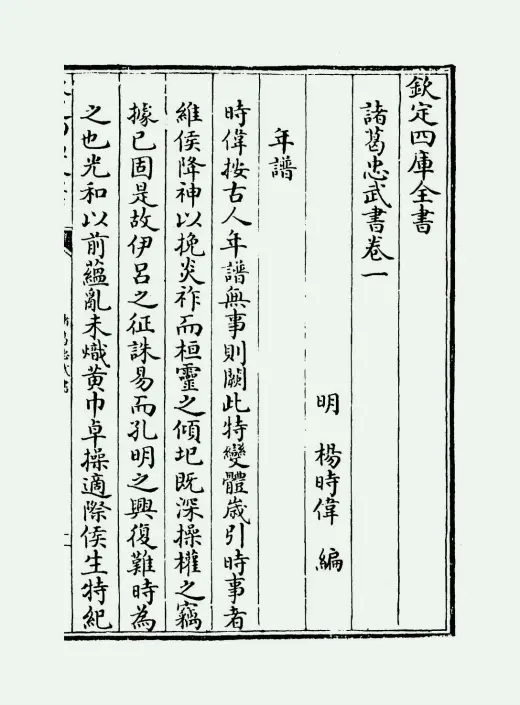 欽定四庫全書
諸葛忠武書卷一
明 楊時偉 編
年譜
時偉按古人年譜無事則闕此特變體歲引時事者
維侯降神以挽炎祚而桓靈之傾圮既深操權之竊
據已固是故伊呂之征誅易而孔明之興復難時為
之也光和以前蘊亂未熾黃巾卓操適際侯生特紀
諸葛忠武書